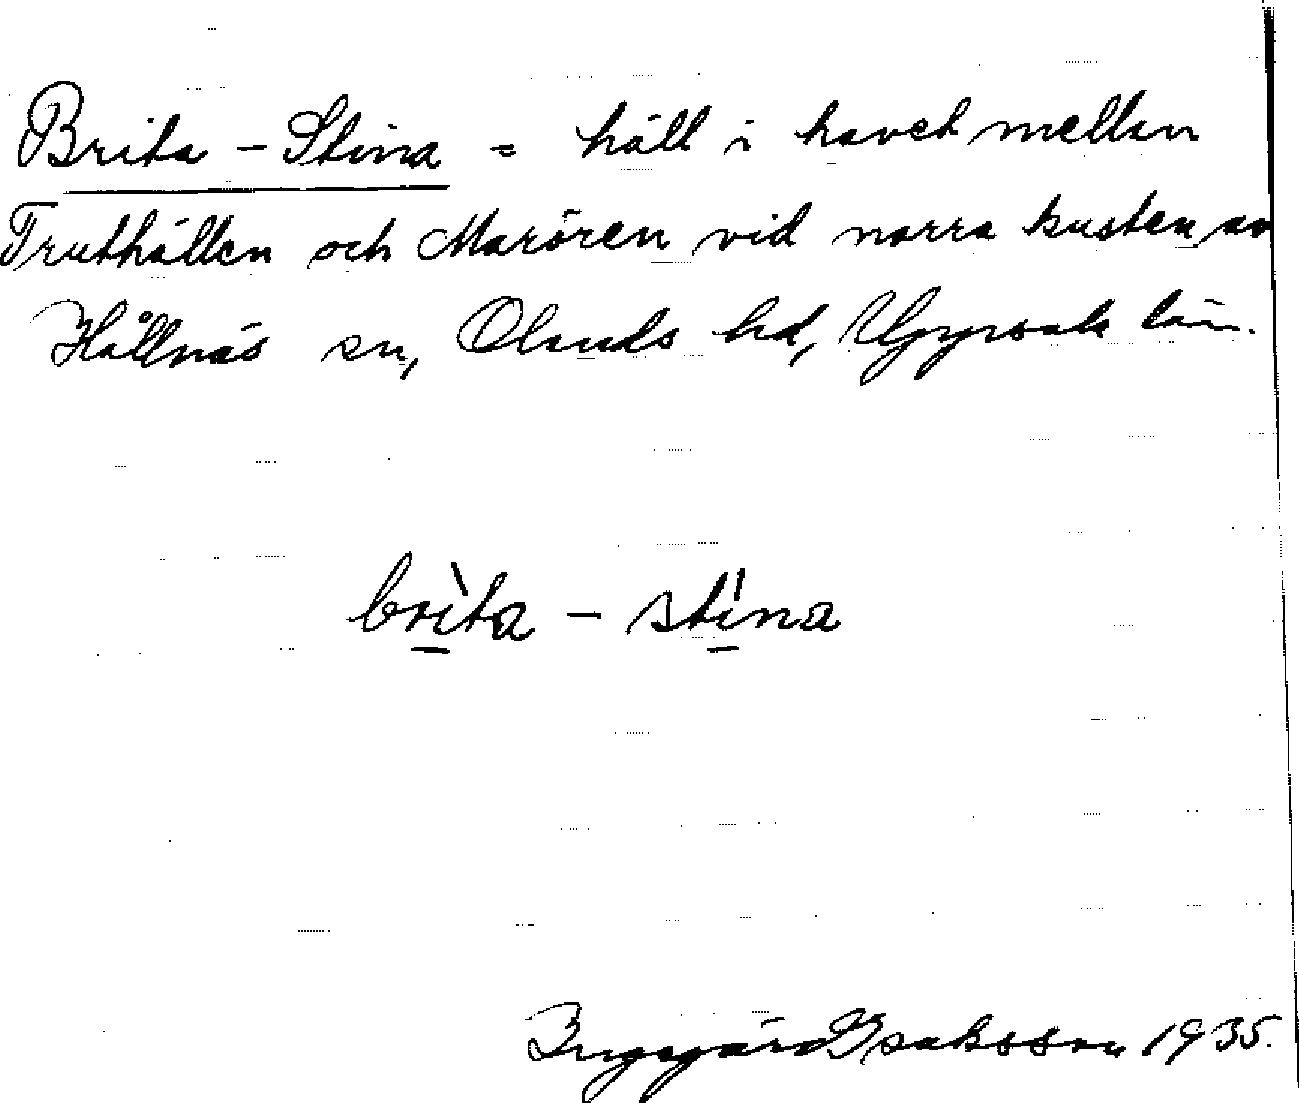 Brita - Stina = häll i havet mellan
Truthällen och Marören vid norra kusten av
Hållnäs sn, Olands hd, Uppsala län.
brìta - stína
Ingegärd Isaksson 1935.